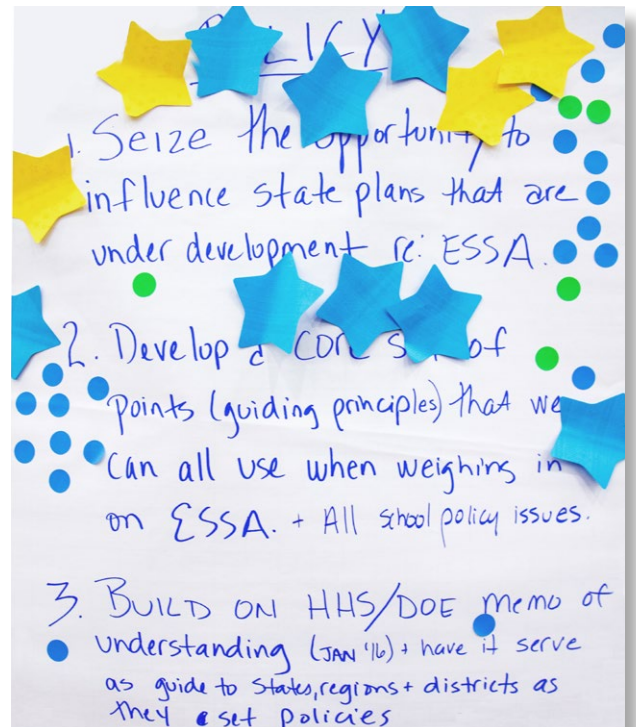 POLICY
1. Seize the opportunity to
influence state plans that are
under development re: ESSA.
2. Develop a core set of
points (guiding principles) that we
can all use when weighing in
on ESSA. + All school policy issues.
3. BUILD ON HHS/DOE memo of
understanding (JAN '16) + have it serve
as guide to states, regions + districts as
they set policies